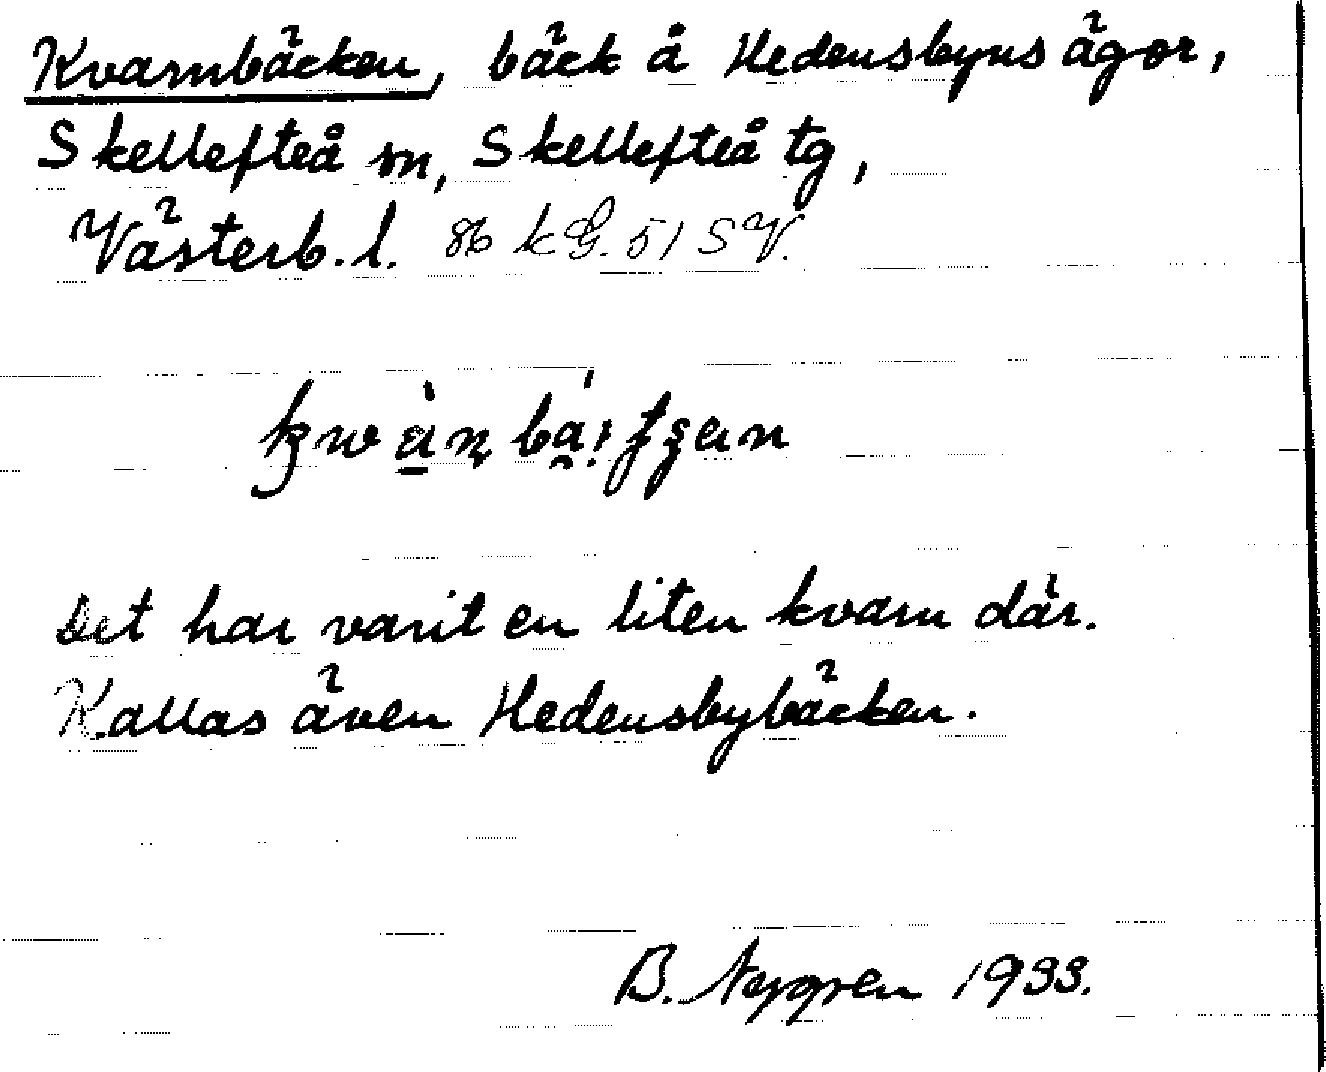 Kvarnbäcken, bäck å Hedensbyns ägor,
Skellefteå sn, Skellefteå tg,
Västerb. l. 86 kG. 51 SV.
Det har varit en liten kvarn där.
Kallas även Hedensbybäcken.
B. Nygren 1933.